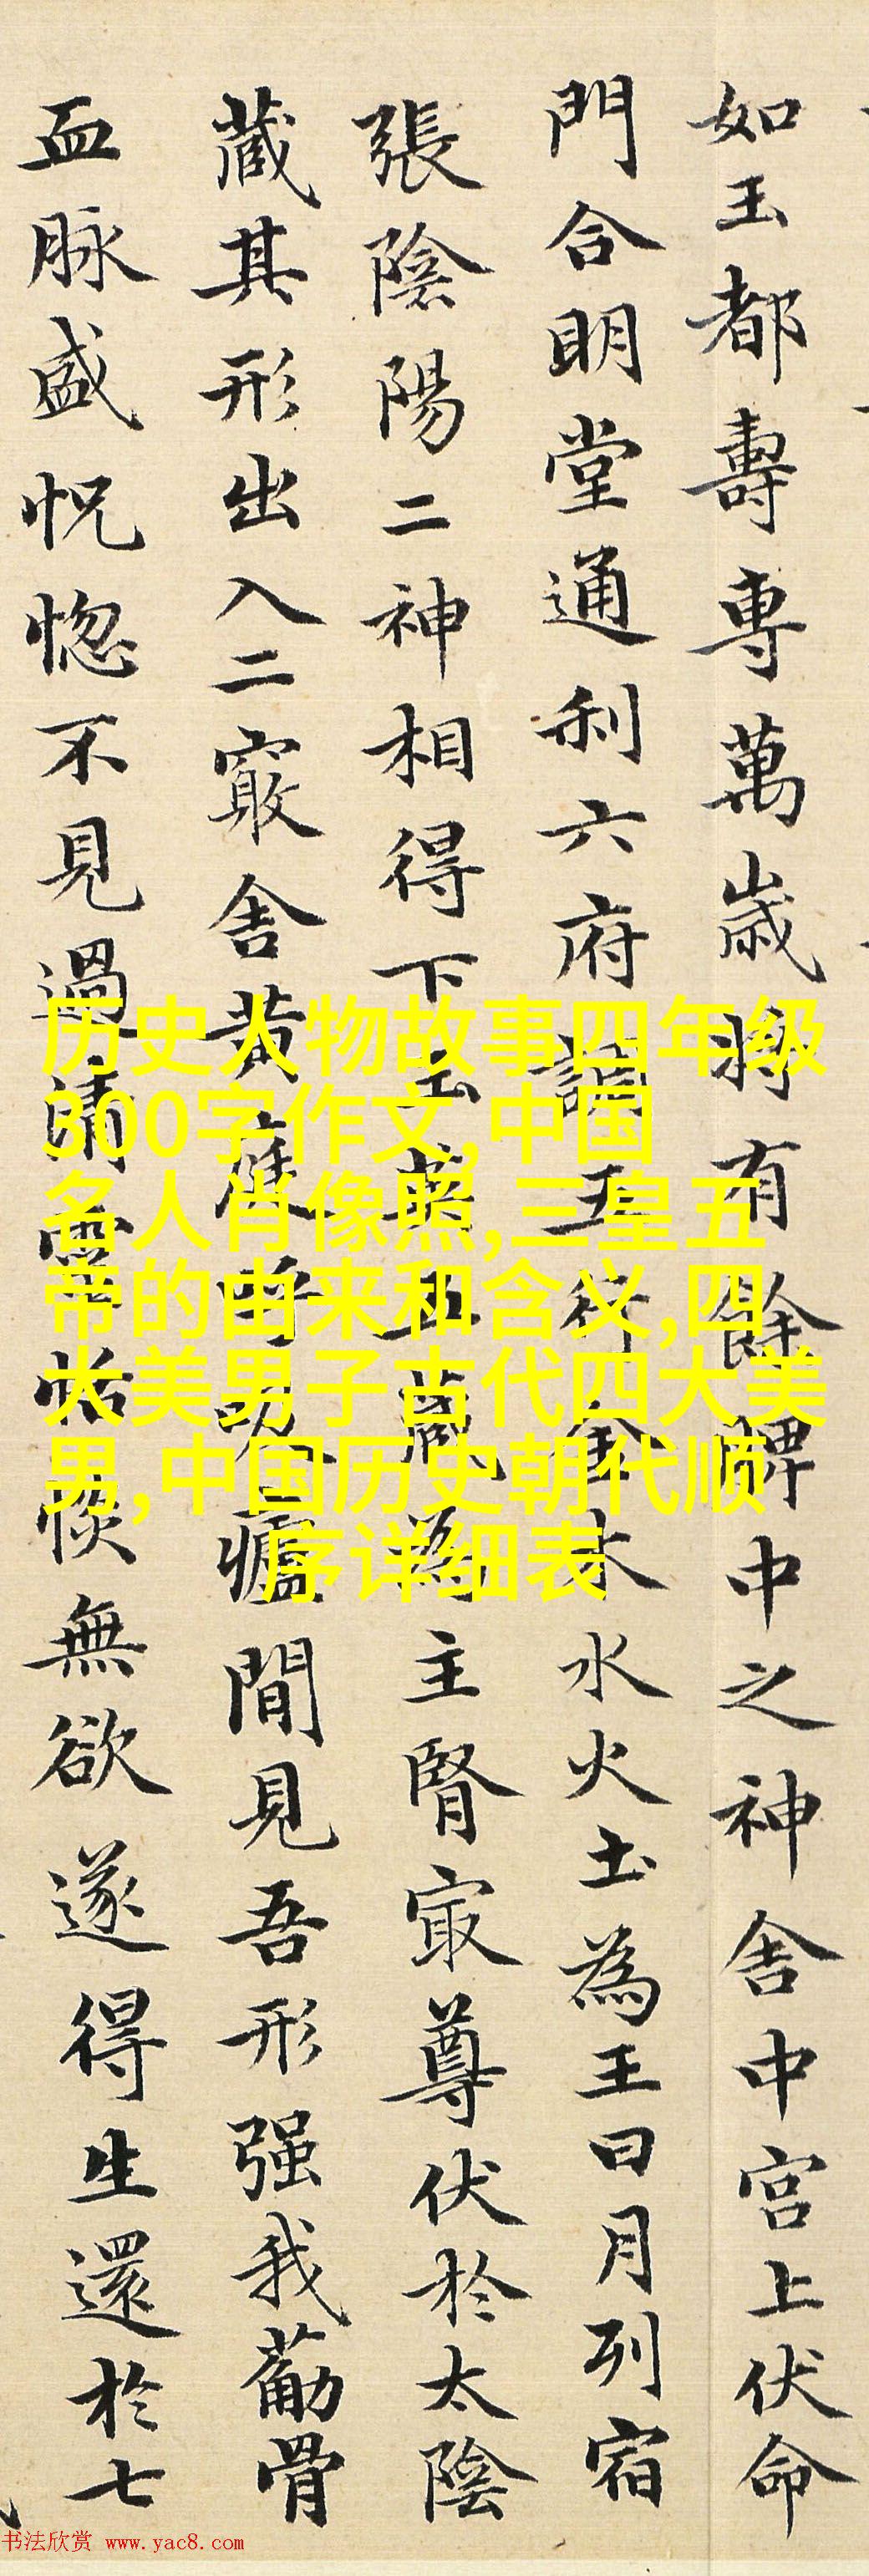 如玉都壽專萬歲將有餘脾中之神舍中宮上伏命
門合明堂通利六府調五行金木水火土為王日月列宿
張陰陽二神相得下玉英五藏為主腎㝡尊伏於太陰
藏其形出入二竅舍黃庭呼吸廬間見吾形强我筋骨
血脉盛怳惚不見過清靈恬惔無欲遂得生還於七
历史人物故事四年级
300字作文,中国
名人肖像照,三皇五
帝的由来和含义,四
大美男子古代四大美
男,中国历史朝代顺
序详细表
书法欣赏 www.yac8.com